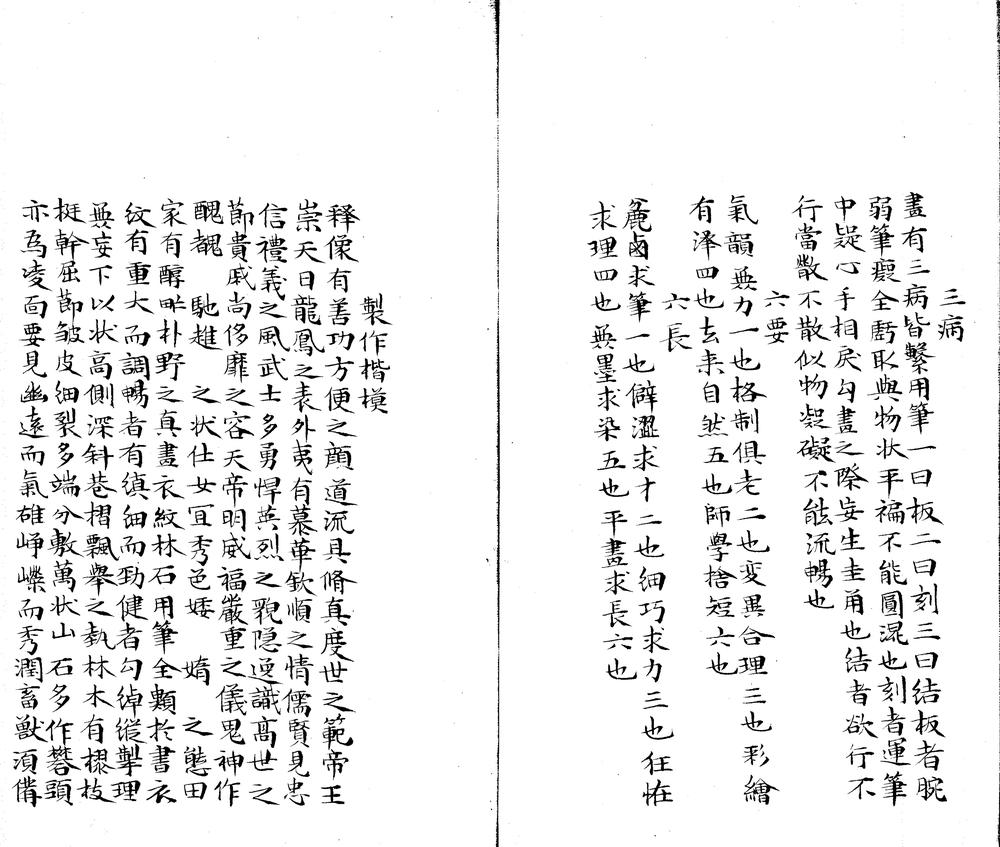 三病
畫有三病皆繫用筆一曰板二曰刻三曰結板者腕
弱筆癡全虧取與物状平褊不能圓混也刻者運筆
中疑心手相戾勾畫之際妄生圭角也結者欲行不
行當散不散似物凝礙不能流暢也
六要
氣韻無力一也格制俱老二也变異合理三也彩繪
有泽四也去来自然五也師學捨短六也
六長
麁鹵求筆一也僻澀求才二也细巧求力三也狂恠
求理四也無墨求染五也平畫求長六也
製作楷模
释像有善功方便之顔道流具脩真度世之範帝王
崇天日龍鳳之表外夷有慕華欽順之情儒賢見忠
信禮義之風武士多勇悍英烈之貌隐逸識高世之
節貴戚尚侈靡之容天帝明威福嚴重之儀鬼神作
醜䰩馳趡之状仕女冝秀色婑媠之態田
家有醇甿朴野之真畫衣紋林石用筆全類於書衣
紋有重大而調暢者有縝细而勁健者勾綽縱掣理
無妄下以状高側深斜巻摺飄舉之埶林木有樛枝
挺幹屈節皱皮细裂多端分敷萬状山石多作礬頭
亦爲凌面要見幽遠而氣雄峥嶸而秀潤畜獣湏備